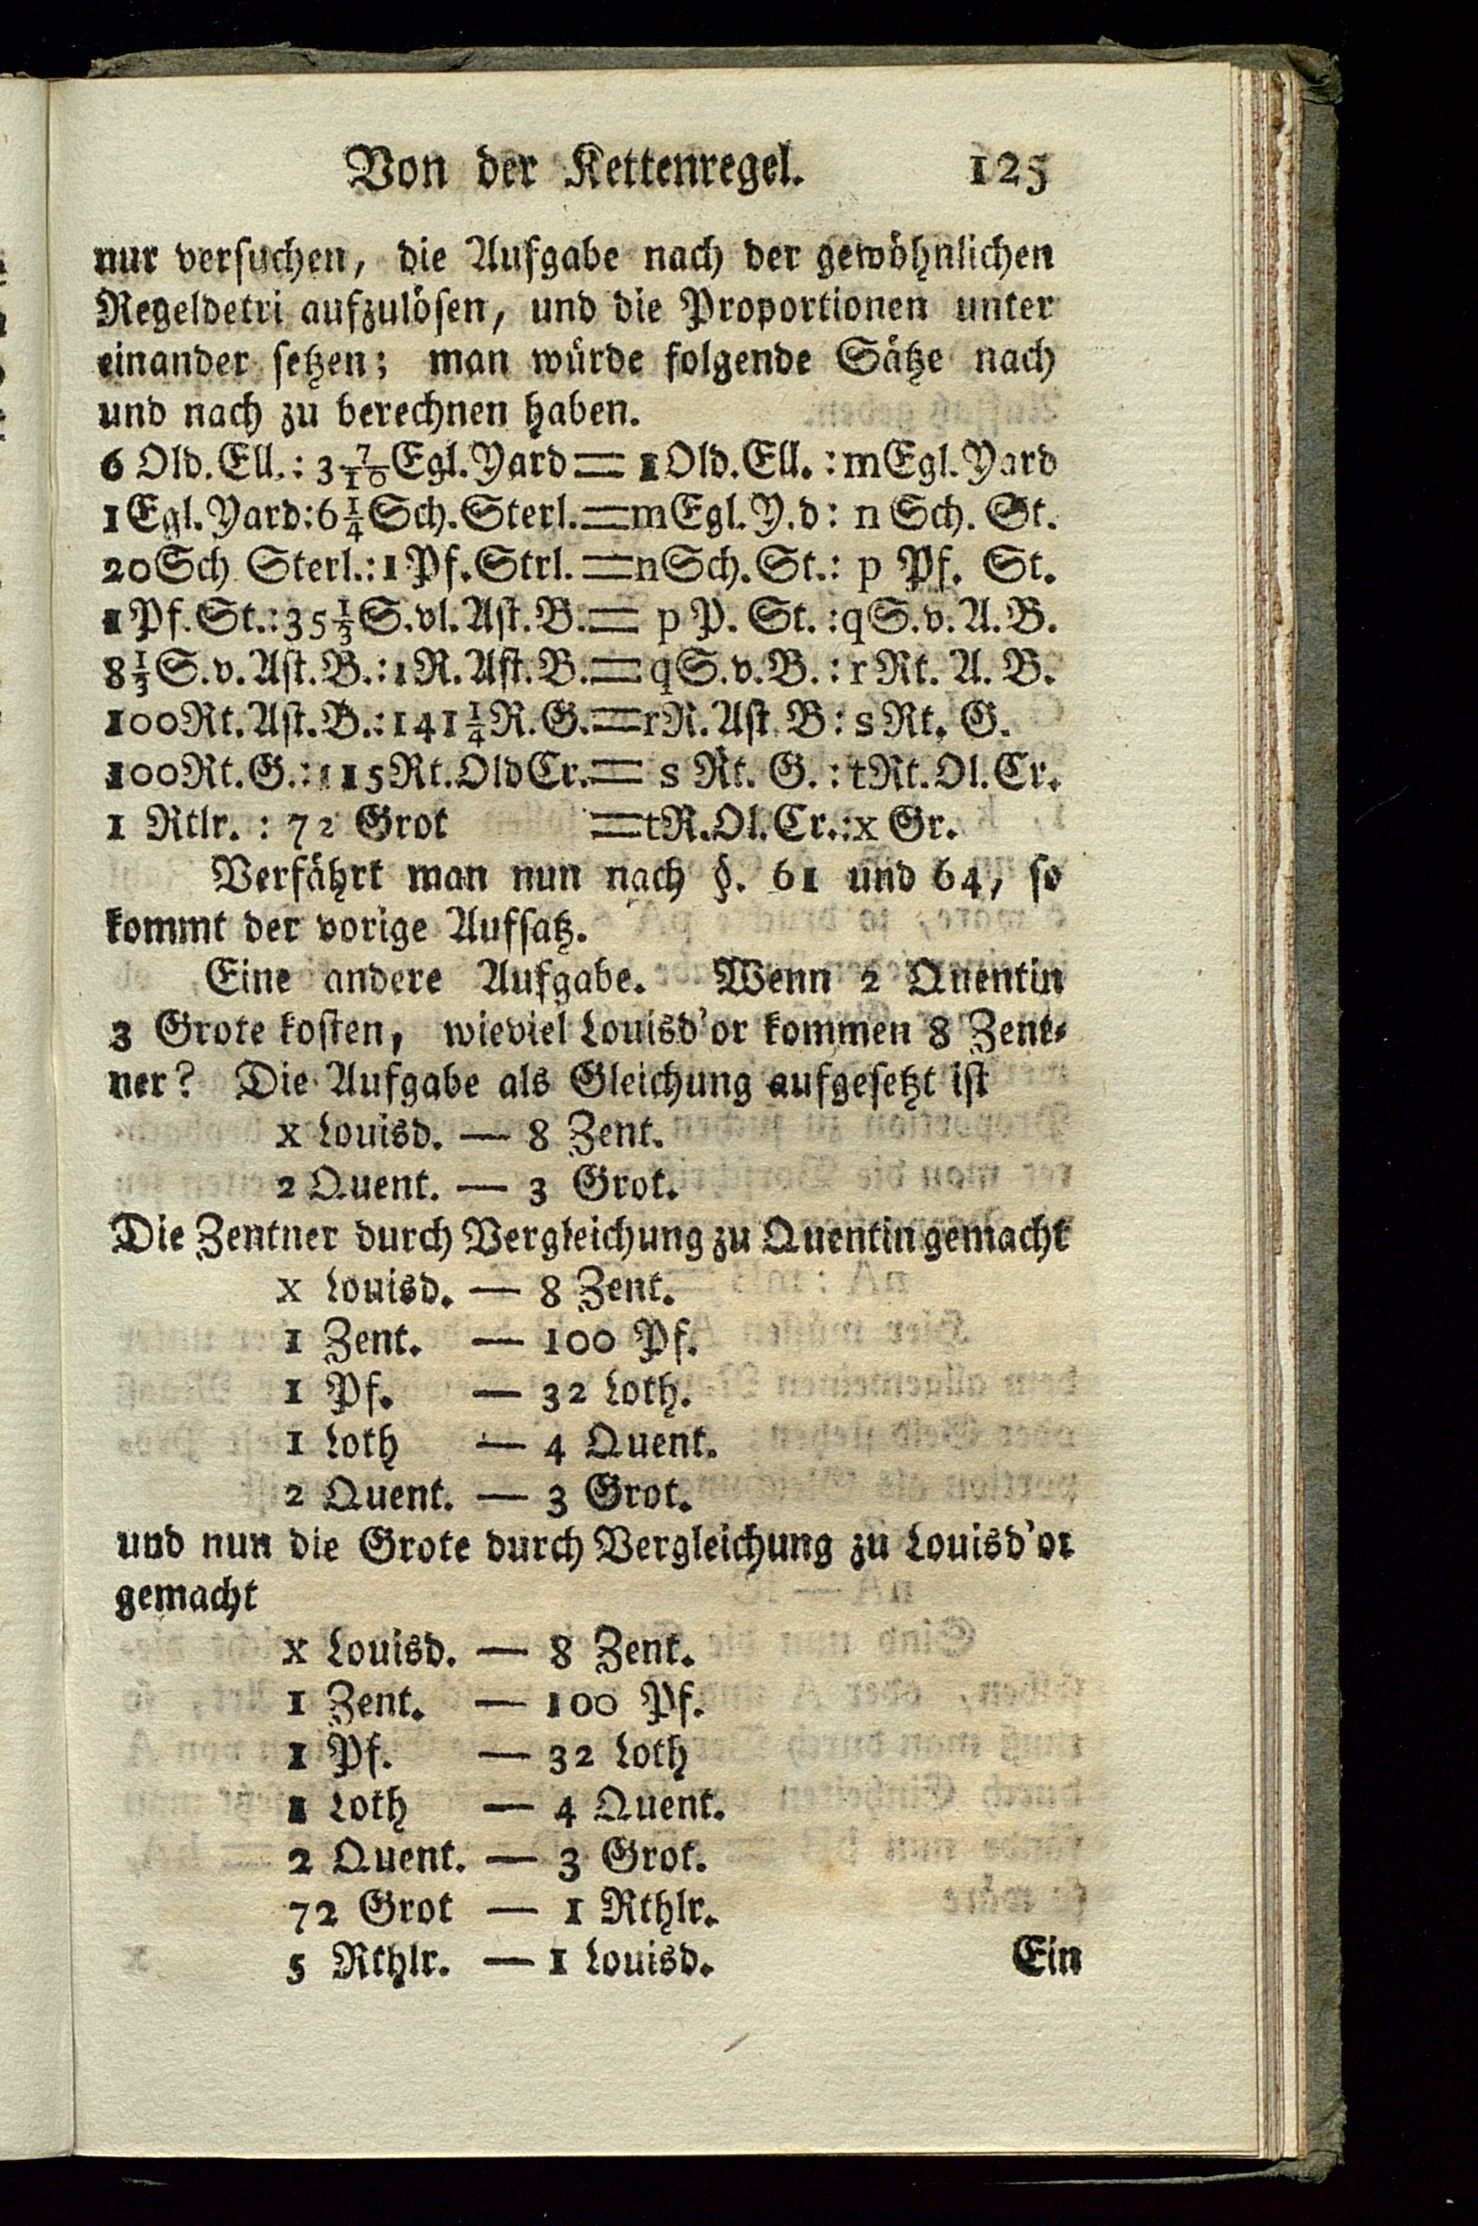 Von der Kettenregel. 125
nur verſuchen, die Aufgabe nach der gewöhnlichen
Regeldetri aufzulöſen, und die Proportionen unter
einander ſetzen; man würde folgende Sätze nach
und nach zu berechnen haben.
6 Old. Ell.: 3 7/10 Egl. Yard = 1 Old. Ell. : m Egl. Yard
1 Egl. Yard: 6 1/4 Sch. Sterl. = m Egl. Y.d: n Sch. St.
20 Sch Sterl.: 1 Pf. Strl. = n Sch. St.: p Pf. St.
1 Pf. St.: 35 1/3 S. vl. Aſt. B. = p P. St. : q S. v. A. B.
8 1/3 S. v. Aſt. B.: 1 R. Aſt. B. = q S. v. B. : r Rt. A. B.
100 Rt. Aſt. B.: 141 1/4 R. G. = r R. Aſt B: s Rt. G.
100 Rt. G.: 115 Rt. Old Cr. = s Rt. G. : t Rt. Ol. Cr.
1 Rtlr. : 72 Grot = t R. Ol. Cr.: x Gr.
Verfährt man nun nach §. 61 und 64, ſo
kommt der vorige Aufſatz.
Eine andere Aufgabe. Wenn 2 Quentin
3 Grote koſten, wieviel Louisd'or kommen 8 Zent-
ner? Die Aufgabe als Gleichung aufgeſetzt iſt
x Louisd. — 8 Zent.
2 Quent. — 3 Grot.
Die Zentner durch Vergleichung zu Quentin gemacht
x Louisd. — 8 Zent.
1 Zent. — 100 Pf.
1 Pf. — 32 Loth.
1 Loth — 4 Quent.
2 Quent. — 3 Grot.
und nun die Grote durch Vergleichung zu Louisd'or
gemacht
x Louisd. — 8 Zent.
1 Zent. — 100 Pf.
1 Pf. — 32 Loth
1 Loth — 4 Quent.
2 Quent. — 3 Grot.
72 Grot — 1 Rthlr.
5 Rthlr. — 1 Louisd.
Ein